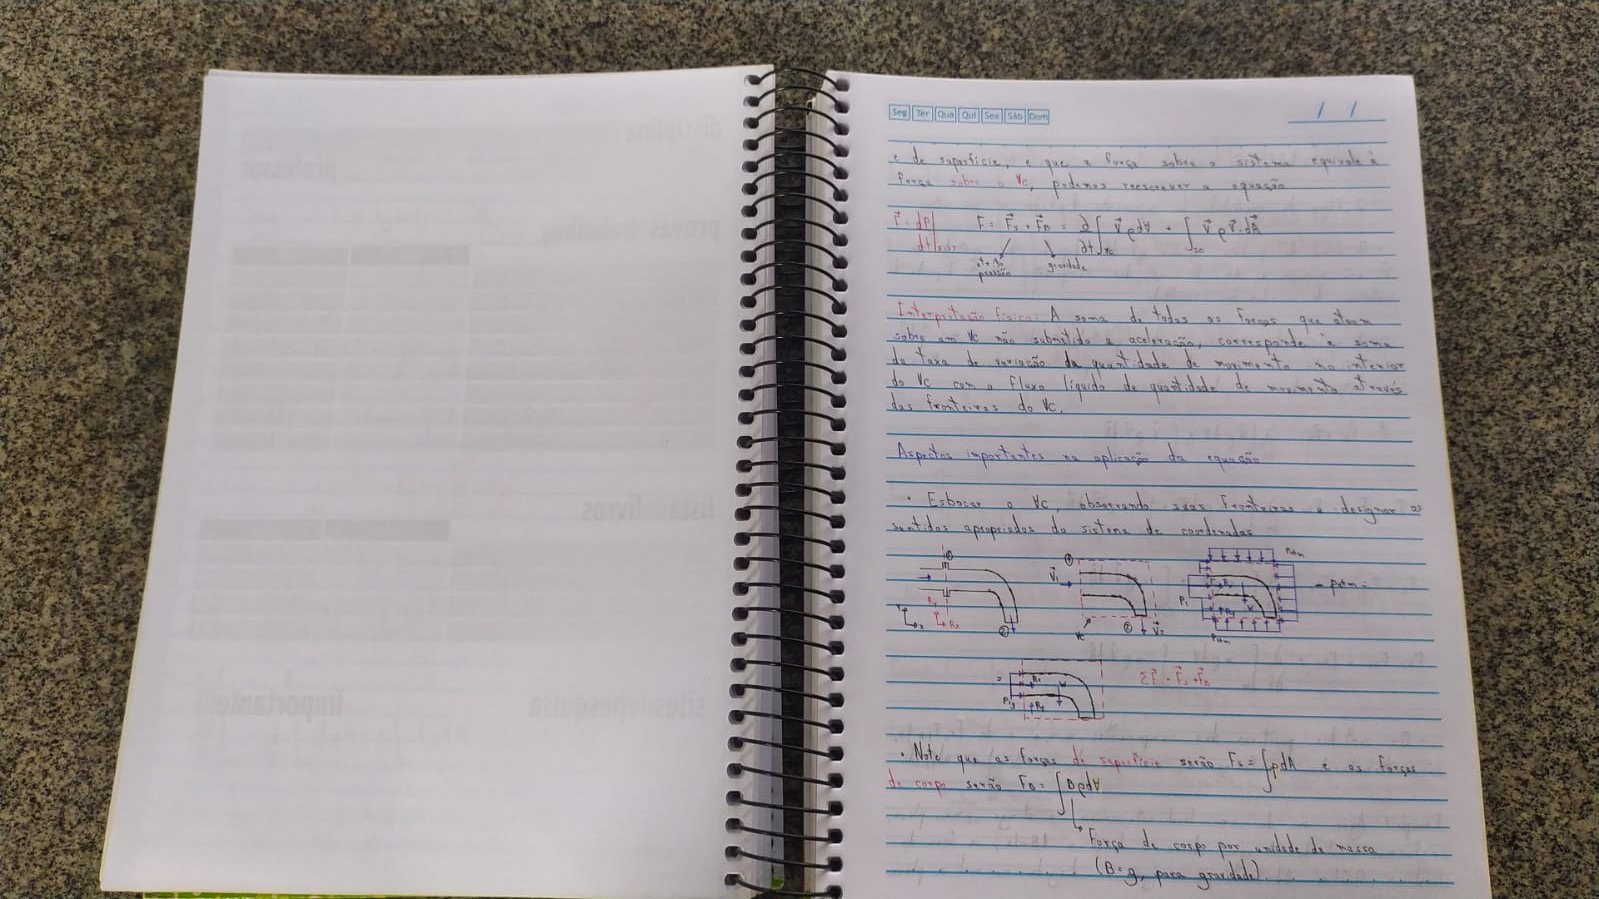 disciplina
professor
provas trabalhos
lista de livros
sites de pesquisa
importante
Seg Ter Qua Qui Sex Sáb Dom
/ /
e de superfície, e que a força sobre o sistema equivale à
força sobre o VC, podemos reescrever a equação
F = dP/dt)sist F = Fs + FB = ∂/∂t ∫VC V ρ dV + ∫SC V ρ V · dA
pressão gravidade
Interpretação física: A soma de todas as forças que atuam
sobre um VC não submetido a aceleração, corresponde à soma
da taxa de variação da quantidade de movimento no interior
do VC com o fluxo líquido de quantidade de movimento através
das fronteiras do VC.
Aspectos importantes na aplicação da equação
· Esboçar o VC, observando suas fronteiras e designar os
sentidos apropriados do sistema de coordenadas
① ① Patm
V1 - patm =
Ry P1 Rx
y x Rx W Ry
② VC ② V2 Patm
= Rx W ΣF = Fs + FB
P1g Ry
· Note que as forças de superfície serão Fs = ∫pdA e as forças
de corpo serão FB = ∫Bρd∀
Força de corpo por unidade de massa
(B=g, para gravidade)